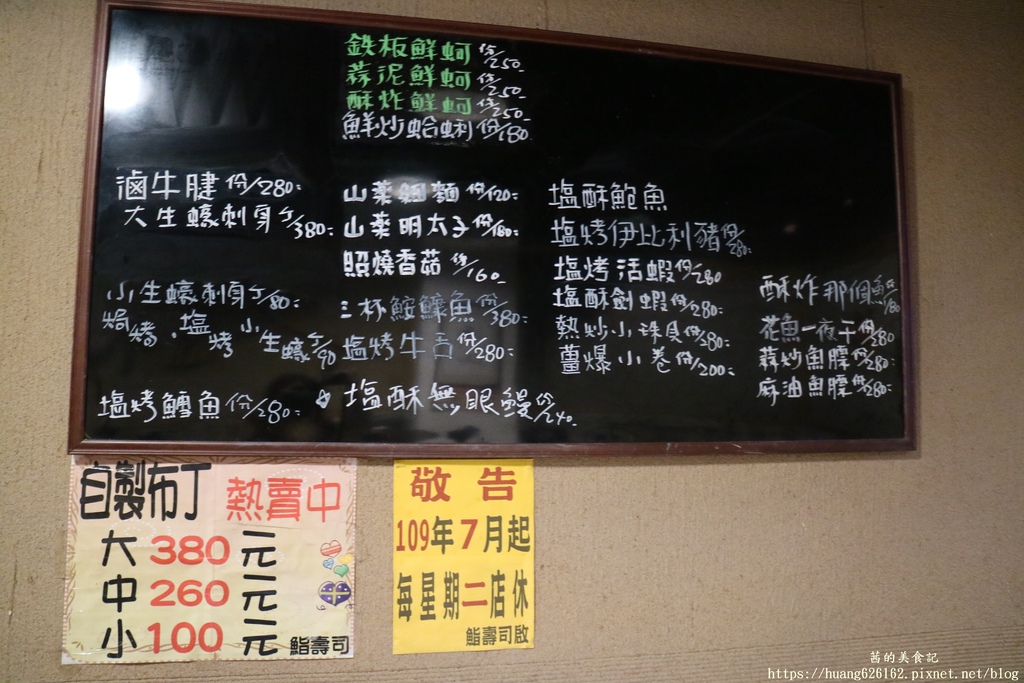 鉄板鮮蚵 份/250.
蒜泥鮮蚵 份/250.
酥炸鮮蚵 份/250.
鮮炒蛤蜊 份/180
滷牛腱 份/280.
大生蠔刺身 个/380.
小生蠔刺身 个/80.
焗烤.塩烤小生蠔 个/90
塩烤鱈魚 份/280.
山薬細麵 份/120.
山薬明太子 份/160.
照燒香菇 份/160
三杯鮟鱇魚 份/380.
塩烤牛舌 份/280.
塩酥無眼鰻 份/240.
塩酥鮑魚
塩烤伊比利豬 份/280.
塩烤活蝦 份/280
塩酥劍蝦 份/280.
熱炒小珠貝 份/380.
薑爆小卷 份/200.
酥炸那個魚 份/180
花魚一夜干 份/380
蒜炒魚膘 份/280.
麻油魚膘 份/280.
自製布丁 熱賣中
大 380 元
中 260 元
小 100 元 鮨壽司
敬告
109年7月起
每星期二店休
鮨壽司啟
茜的美食記
https://huang626162.pixnet.net/blog